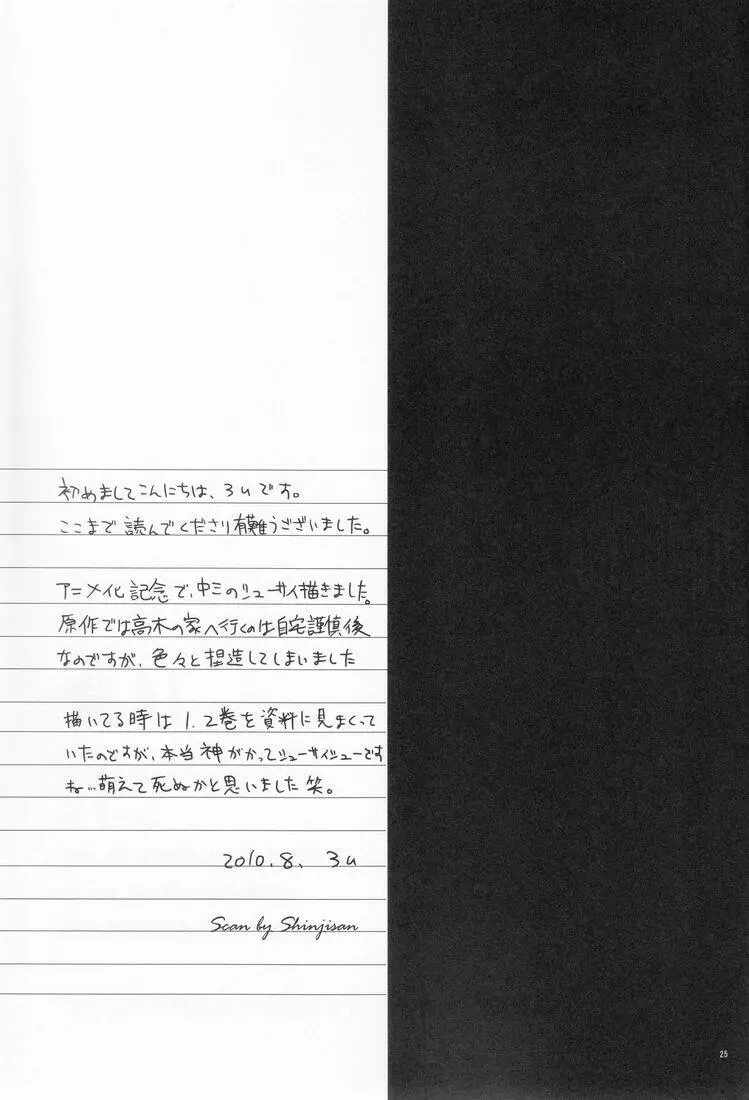 初めましてこんにちは、3uです。
ここまで読んでくださり有難うございました。
アニメ化記念で、中三のシューサイ描きました。
原作では高木の家へ行くのは自宅謹慎後
なのですが、色々と捏造してしまいました
描いてる時は1.2巻を資料に見まくって
いたのですが、本当神がかってシューサイシューですね
ね…萌えて死ぬかと思いました笑。
2010.8、3u
Scan by Shinjisan
25